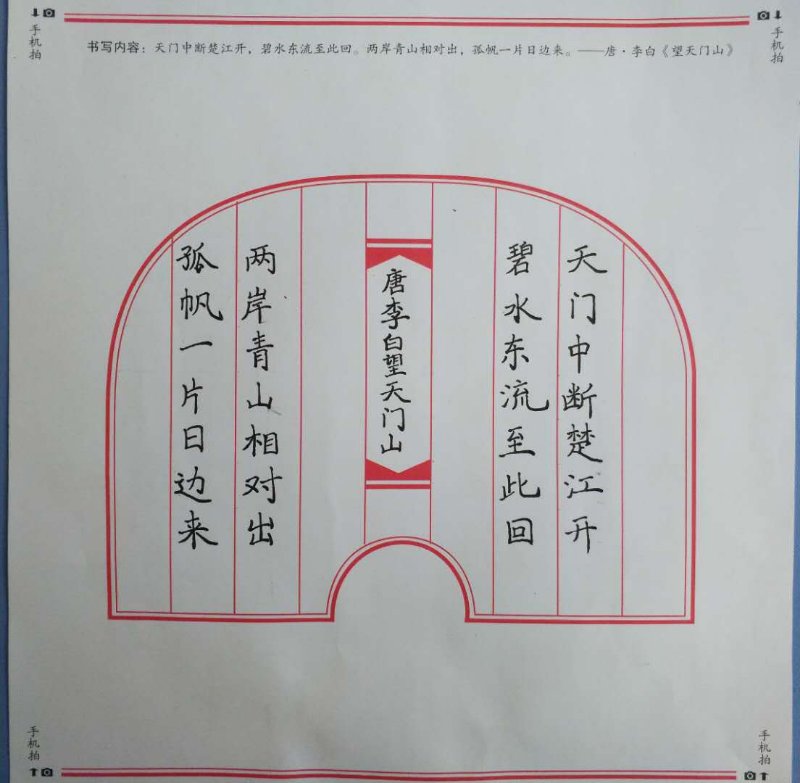 手机拍
手机拍
书写内容：天门中断楚江开，碧水东流至此回。两岸青山相对出，孤帆一片日边来。——唐·李白《望天门山》
天门中断楚江开
碧水东流至此回
唐李白望天门山
两岸青山相对出
孤帆一片日边来
手机拍
手机拍